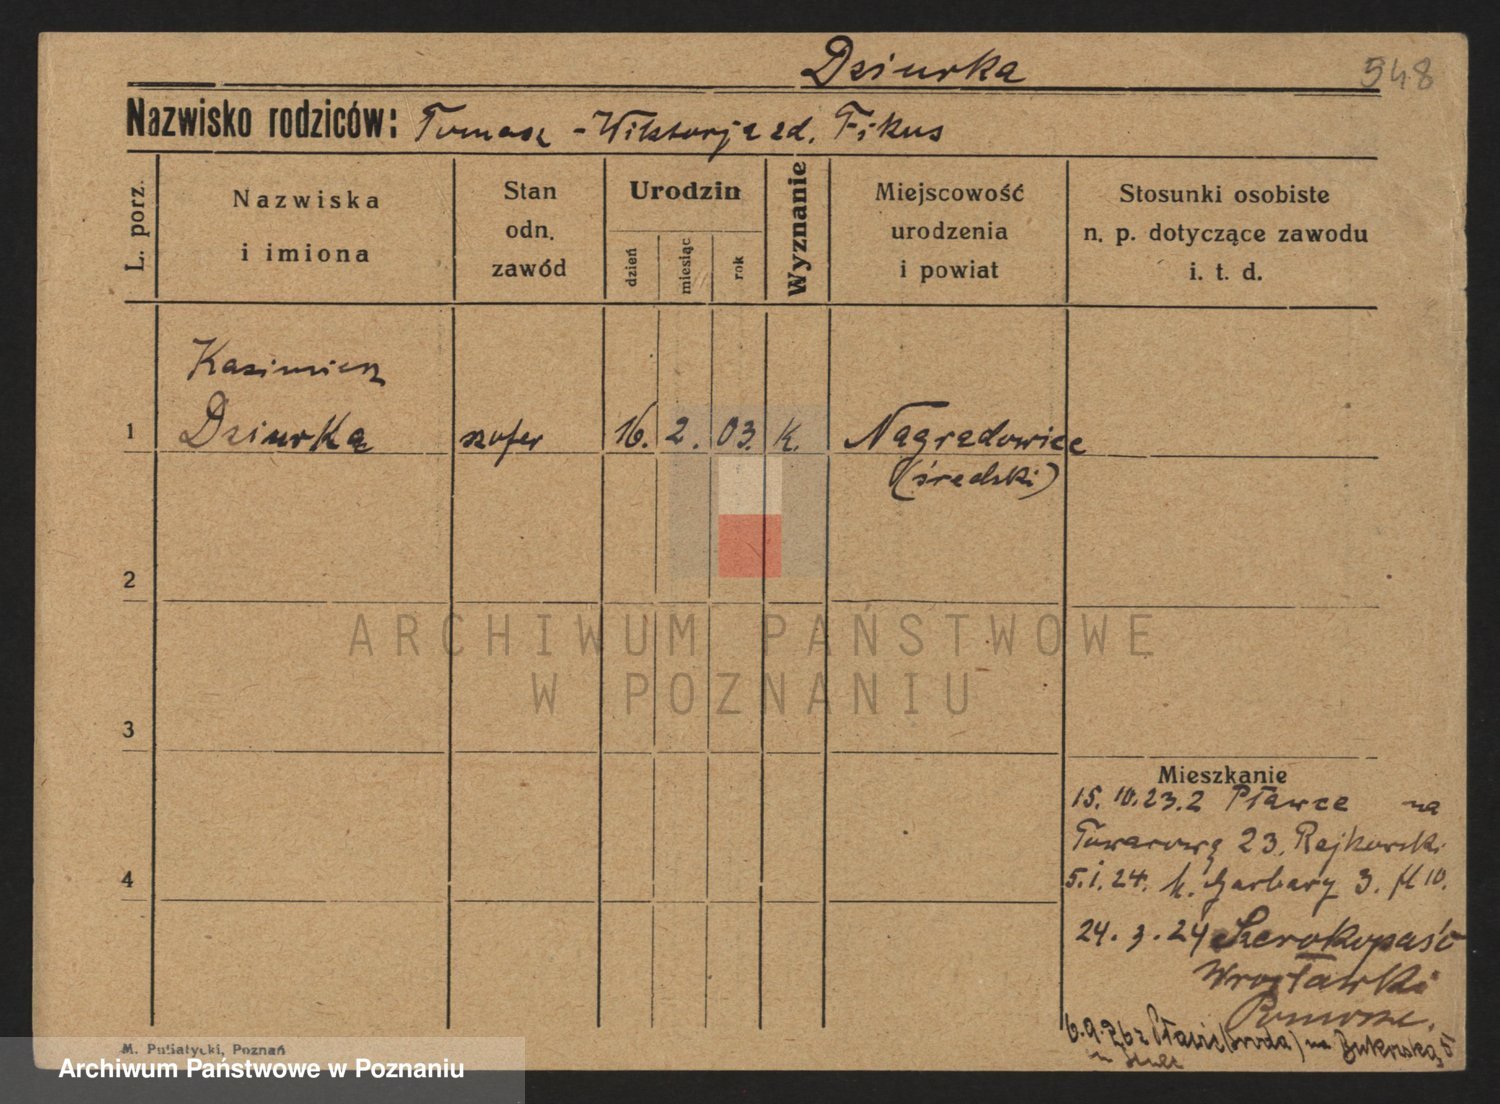 Dziurka 548
Nazwisko rodziców: Tomasz - Wiktorja zd. Fikus
L. porz.
Nazwiska
i imiona
Stan
odn.
zawód
Urodzin
dzień
miesiąc
rok
Wyznanie
Miejscowość
urodzenia
i powiat
Stosunki osobiste
n. p. dotyczące zawodu
i. t. d.
Kazimierz
1 Dziurka szofer 16. 2. 03. k. Nagradowice
(średzki)
2
ARCHIWUM PAŃSTWOWE
W POZNANIU
3
Mieszkanie
15. 10. 23. z Pławce na
Towarową 23. Rajkowski
4
5. 1. 24. k. Garbary 3. fl 10.
24. 3. 24 Szerokopaść
Wrocławki
Pomorze.
6. 9. 26 z (Środa) na Bukowską 5
M. Putiatycki, Poznań
Archiwum Państwowe w Poznaniu